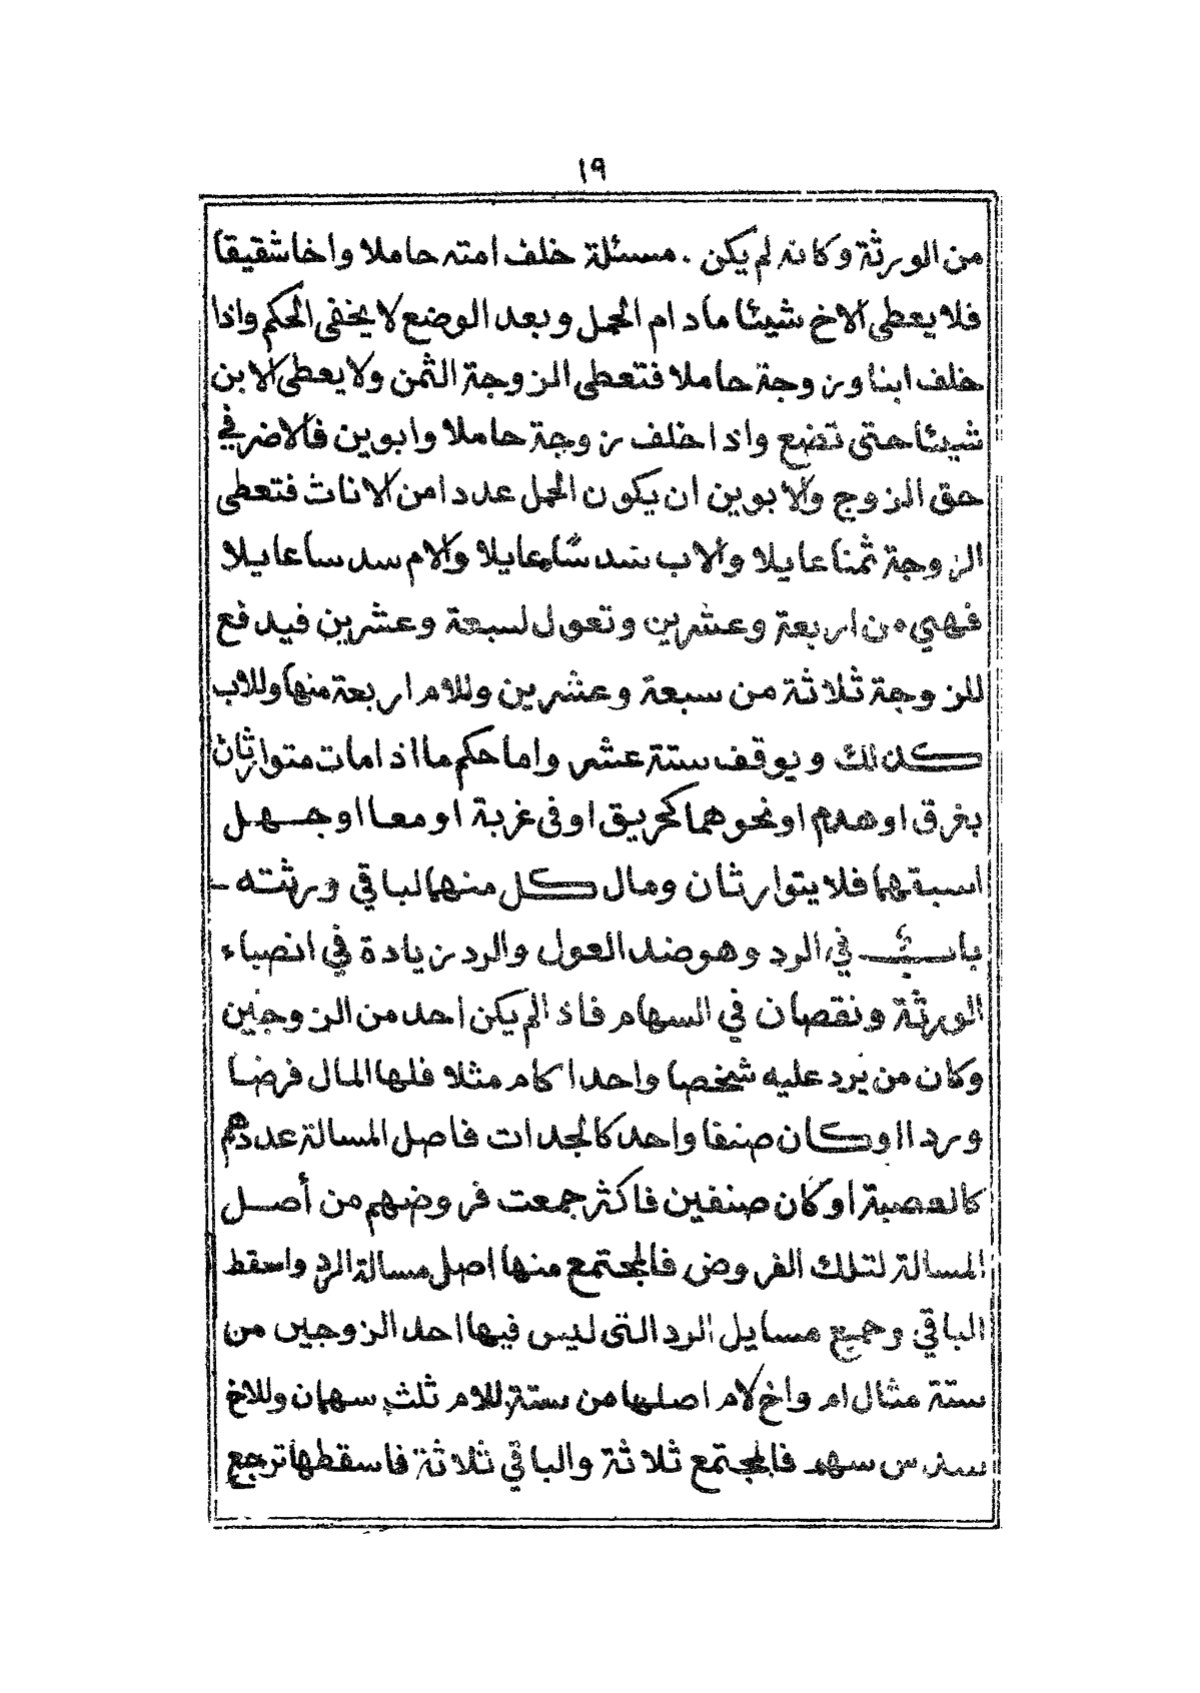 ١٩
من الورثة وكانه لم يكن . مسئلة خلف امته حاملا واخا شقيقا
فلا يعطى الاخ شيئا مادام الحمل وبعد الوضع لا يخفى الحكم واذا
خلف ابنا وزوجة حاملا فتعطى الزوجة الثمن ولا يعطى الابن
شيئا حتى تضع واذا خلف زوجة حاملا وابوين فالاضر في
حق الزوج والابوين ان يكون الحمل عددا من الاناث فتعطى
الزوجة ثمنا عايلا والاب سدسا عايلا والام سدسا عايلا
فهي من اربعة وعشرين وتعول لسبعة وعشرين فيدفع
للزوجة ثلاثة من سبعة وعشرين وللام اربعة منها وللاب
كذلك ويوقف ستة عشر واما حكم ما اذا مات متوارثان
بغرق او هدم او نحوهما كحريق او فى غربة او معا او جهل
اسبقهما فلا يتوارثان ومال كل منهما لباقي ورثته -
باب في الرد وهو ضد العول والرد زيادة في انصباء
الورثة ونقصان في السهام فاذا لم يكن احد من الزوجين
وكان من يرد عليه شخصا واحدا كام مثلا فلها المال فرضا
وردا اوكان صنفا واحد كالجدات فاصل المسالة عددهم
كالعصبة او كان صنفين فاكثر جمعت فروضهم من أصل
المسالة لتلك الفروض فالمجتمع منها اصل مسالة الرد واسقط
الباقي وجميع مسايل الرد التى ليس فيها احد الزوجين من
ستة مثال ام واخ لام اصلها من ستة للام ثلث سهمان وللاخ
سدس سهم فالمجتمع ثلاثة والباقي ثلاثة فاسقطها ترجع